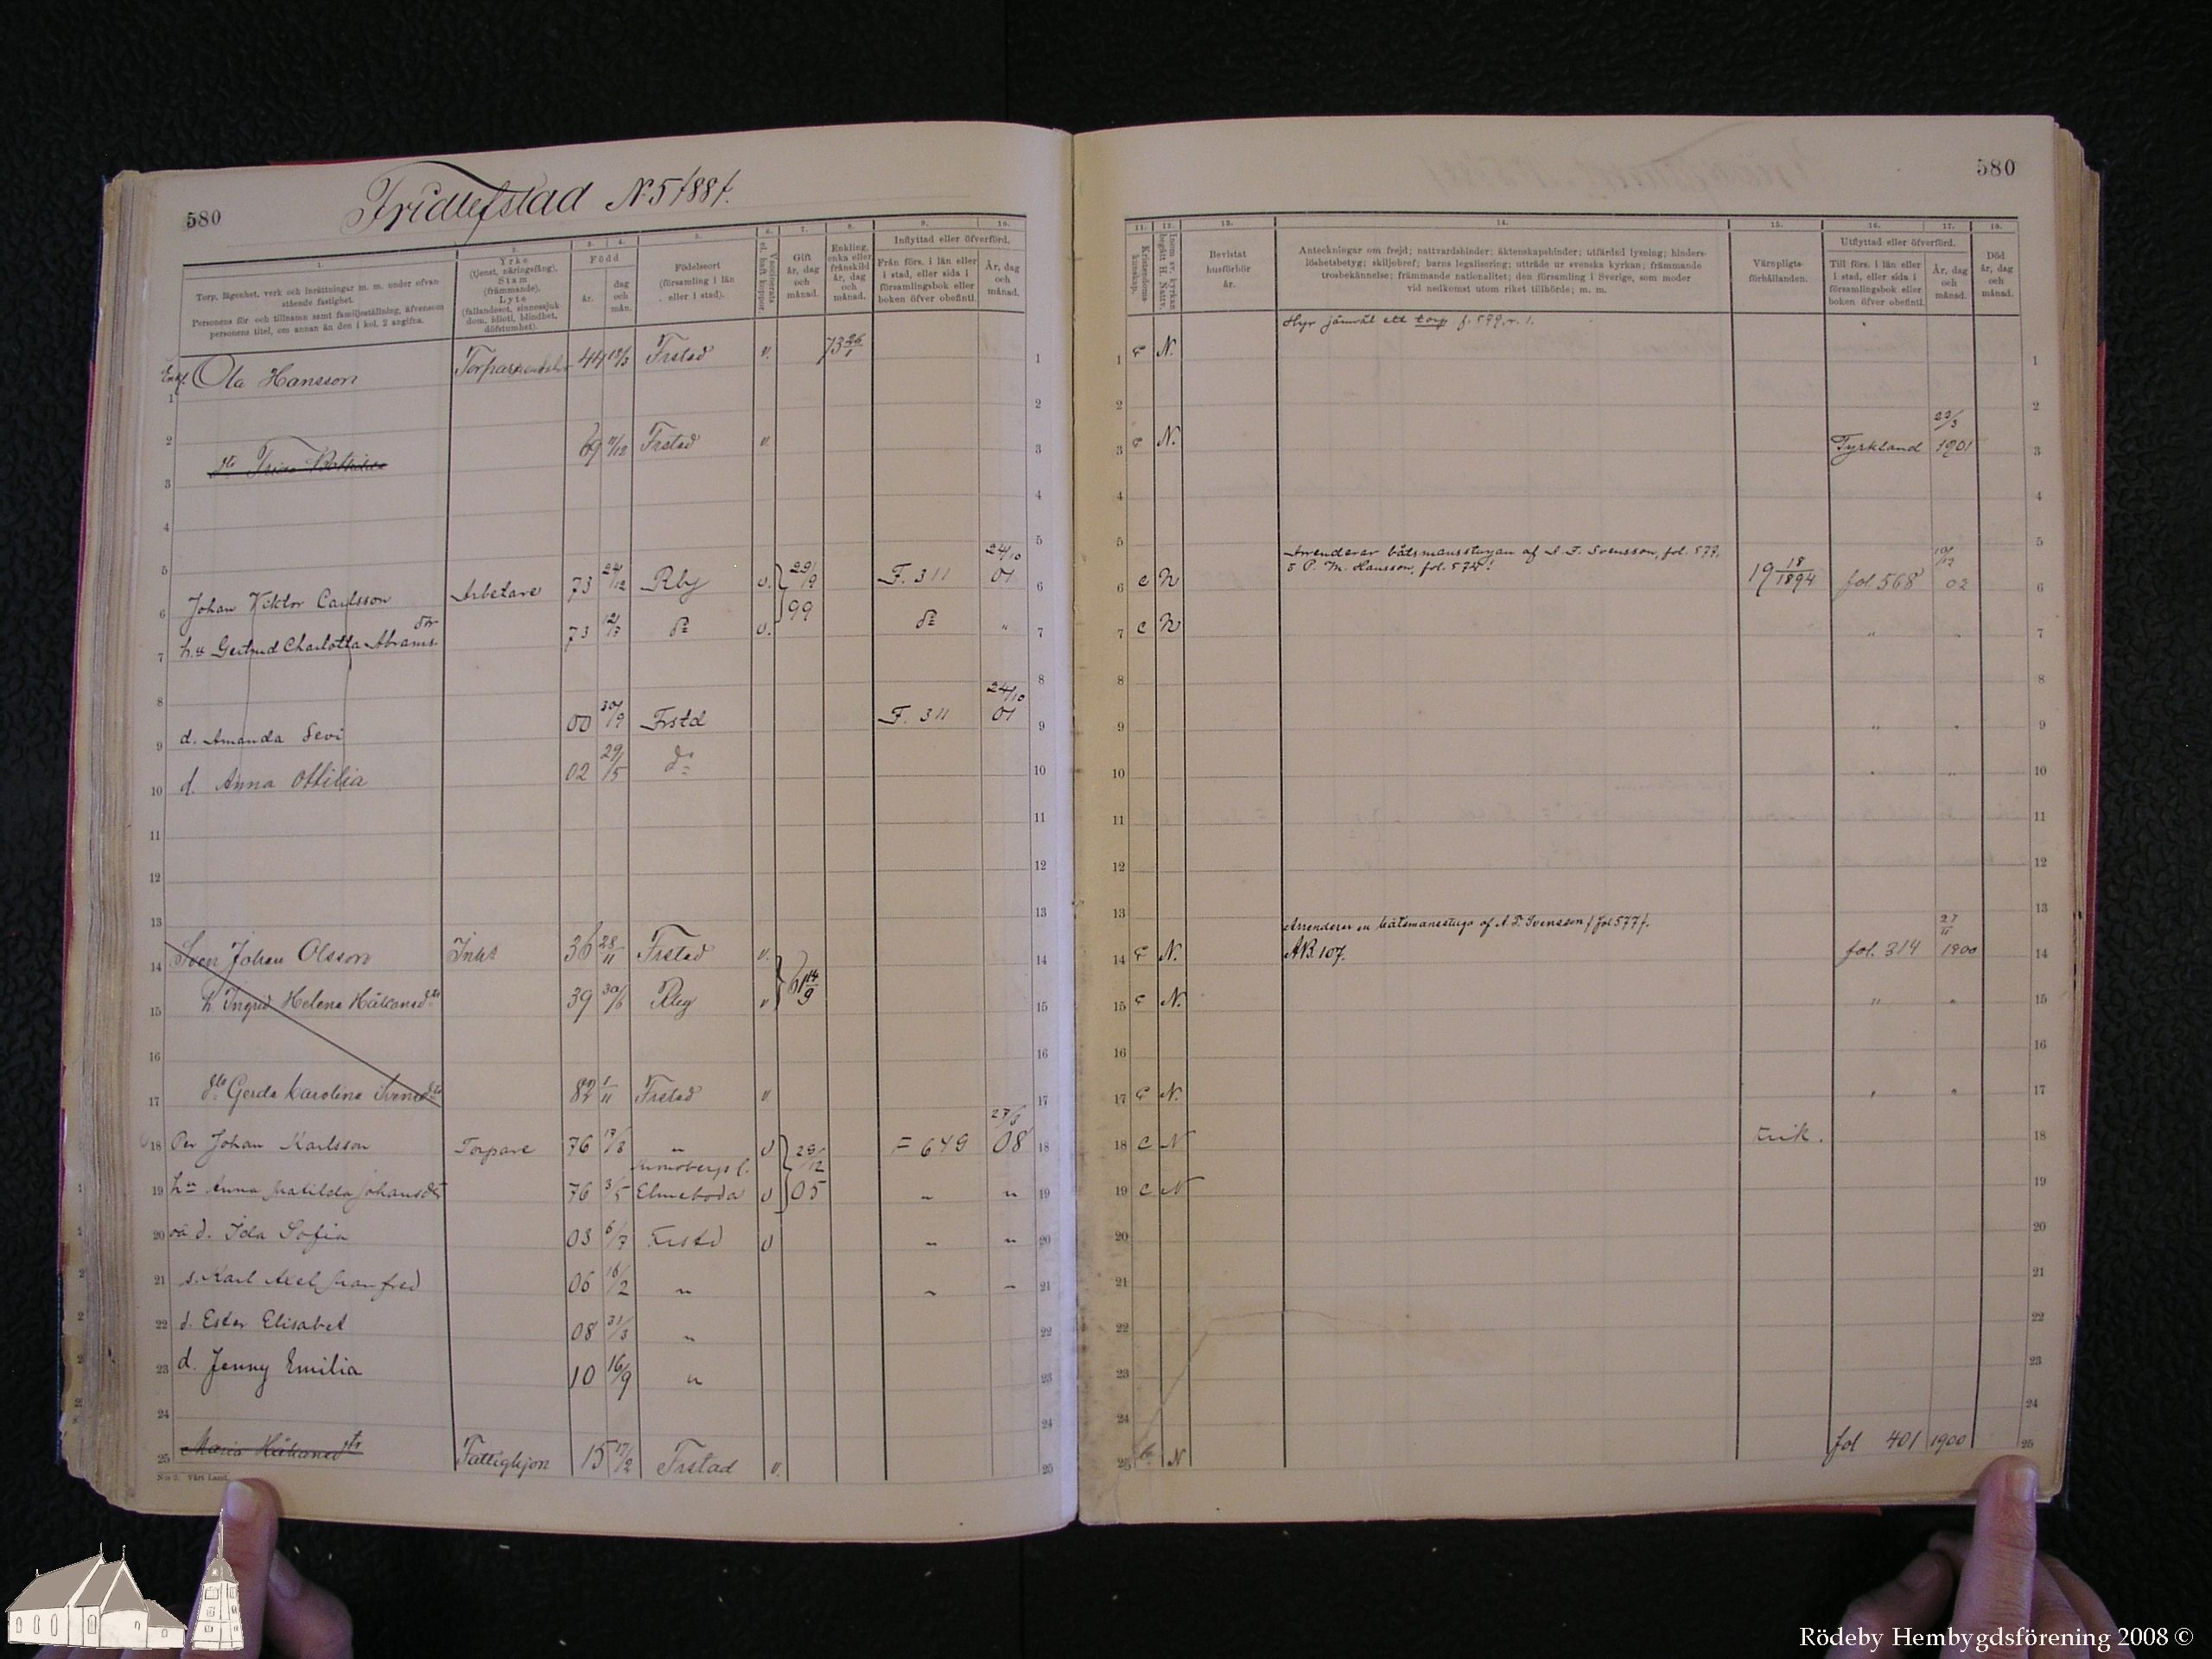 580
Fridlefstad N. 5 /88/.
1.
Torp, lägenhet, verk och inrättningar m. m. under ofvan
stående fastighet.
Personens för- och tillnamn samt familjeställning, äfvensom
personens titel, om annan än den i kol. 2 angifna.
2.
Yrke
(tjenst, näringsfång).
Stam
(främmande).
Lyte
(fallandesot, sinnessjuk-
dom, idioti, blindhet,
döfstumhet).
3. 4.
Född
år.
dag
och
mån.
5.
Födelseort
(församling i län
eller i stad).
6.
Vaccinerats
el. haft koppor.
7.
Gift
år, dag
och
månad.
8.
Enkling,
enka eller
frånskild
år, dag
och
månad.
9. 10.
Inflyttad eller öfverförd.
Från förs. i län eller
i stad, eller sida i
församlingsbok eller
boken öfver obefintl.
År, dag
och
månad.
1 Enkl. Ola Hansson 44 Frstad v. 73 26/1
2
3 69 11/12 Frstad v.
4
5
6 Johan Viktor Carlsson Arbetare 73 24/12 Rby v. 29/12 99 F. 311 24/10 01
7 h. Gertrud Charlotta Abrams- dtr 73 12/7 d:o v. d:o "
8
9 d. Amanda Sevi 00 30/9 Frstd F. 311 24/10 01
10 d. Anna Ottilia 02 29/5 d:o
11
12
13
14 Sven Johan Olsson Inhs 36 28/11 Frstad v. 61 14/9
15 h. Ingrid Helena Håkansdtr 39 30/6 Rby v
16
17 dtr Gerda Karolina Svensdtr 82 1/11 Frstad v
18 Per Johan Karlsson Torpare 76 17/3 " v 29/12 05 F 649 27/3 08
19 h:u Anna Matilda Johansdtr 76 3/5 Elmeboda v " "
20 oä d. Ida Sofia 03 6/7 Frstd v " "
21 s. Karl Axel Manfred 06 16/2 " " "
22 d. Ester Elisabet 08 31/3 "
23 d. Jenny Emilia 10 16/9 "
24
25 Maria Håkansdtr Fattighjon 15 17/2 Frstad v.
N:o 2. Vårt Land.
580
11.
Kristendoms-
kunskap.
12.
Inom sv. kyrkan
begått H. Nattv.
13.
Bevistat
husförhör
år.
14.
Anteckningar om frejd; nattvardshinder; äktenskapshinder; utfärdad lysning; hinders-
löshetsbetyg; skiljobref; barns legalisering; utträde ur svenska kyrkan; främmande
trosbekännelse; främmande nationalitet; den församling i Sverige, som moder
vid nedkomst utom riket tillhörde; m. m.
15.
Värnpligts-
förhållanden.
16. 17.
Utflyttad eller öfverförd.
Till förs. i län eller
i stad, eller sida i
församlingsbok eller
boken öfver obefintl.
År, dag
och
månad.
18.
Död
år, dag
och
månad.
Hyr jämväl ett torp f. 579, n. 1.
1 N. 1
2 2
3 N. Tyrkland 23/3 1901 3
4 4
5 5
Arrenderar båtsmansstugan af A. F. Svensson, fol. 577.
6 c N o P. M. Hansson, fol. 574! 19 18/1894 fol. 568 02 6
7 c N " " 7
8 8
9 " " 9
10 " " 10
11 11
12 12
13 13
Arrenderar en båtsmansstuga af A. F. Svensson / fol 577/.
14 N. AB. 107. fol. 314 27/11 1900 14
15 N. " " 15
16 16
17 N. " " 17
18 c N Erik. 18
19 c N 19
20 20
21 21
22 22
23 23
24 24
25 N fol 401 1900 25
Rödeby Hembygdsförening 2008 ©